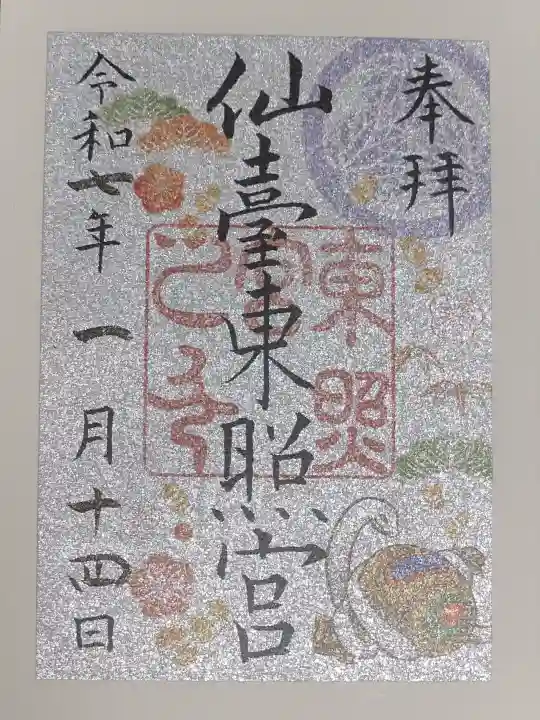 奉拝
仙臺東照宮
東照
令和七年一月十四日